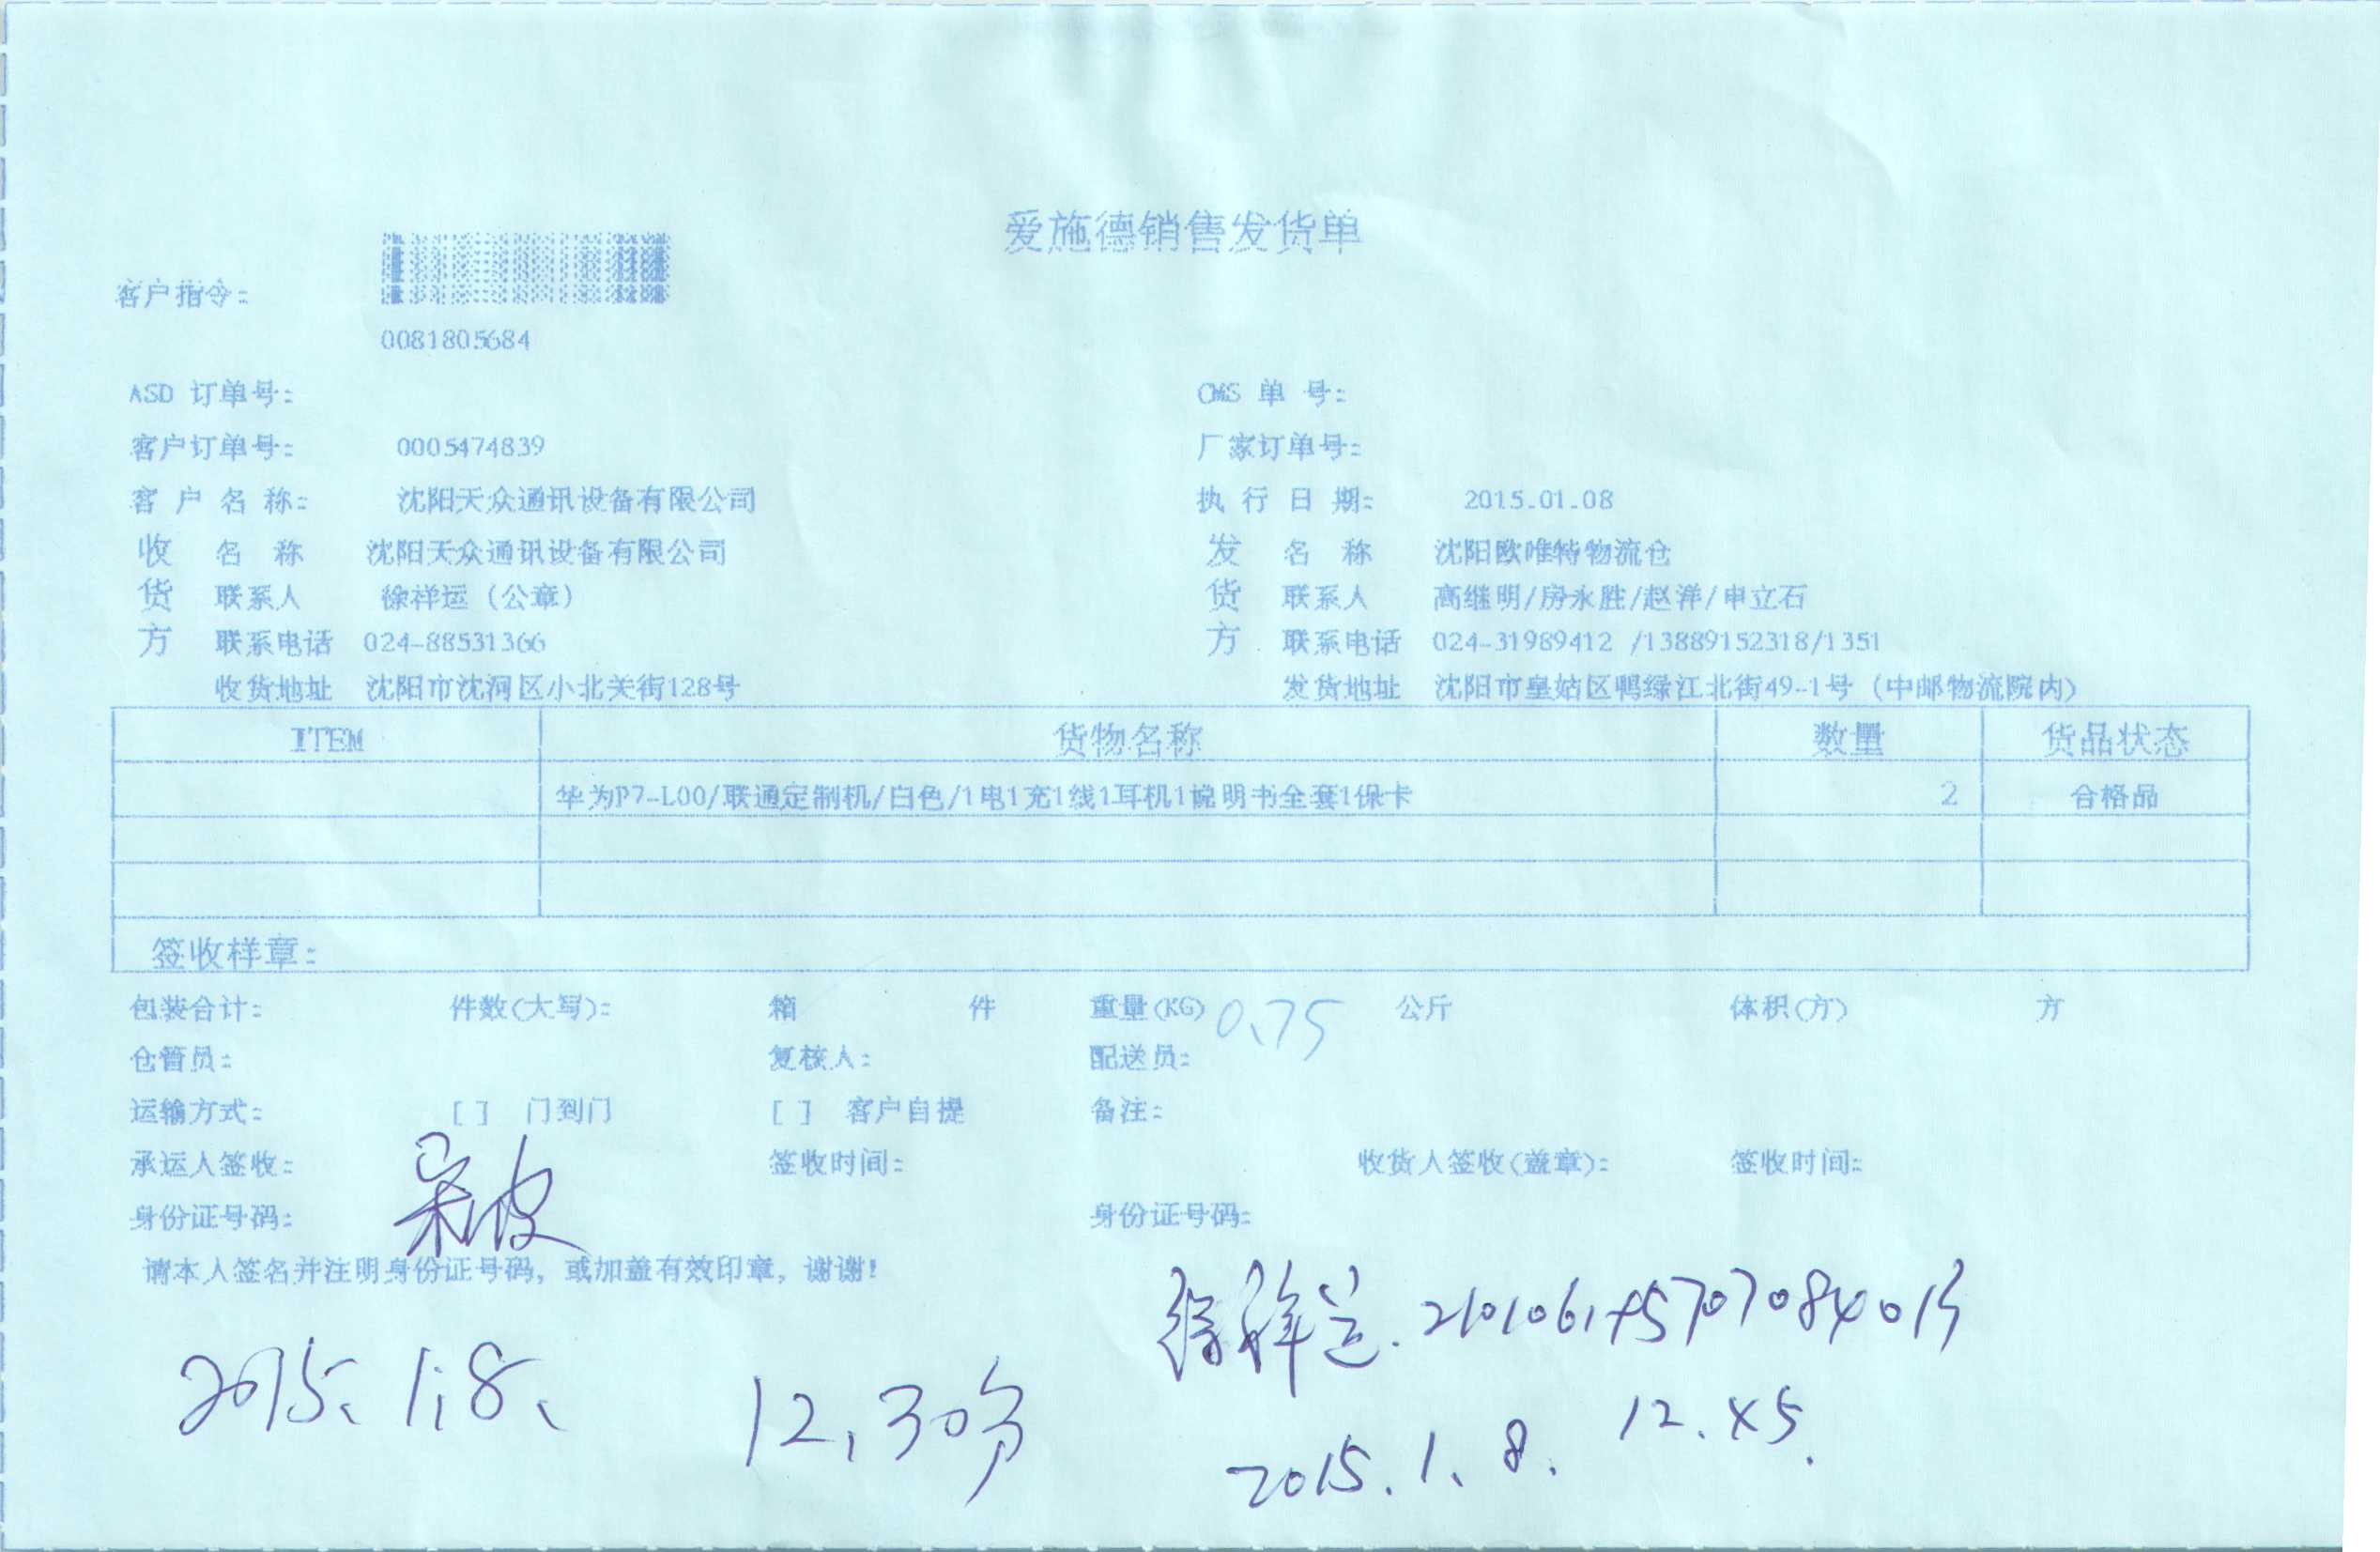 爱施德销售发货单
客户指令:
0081805684
ASD 订单号: CMS 单 号:
客户订单号: 0005474839 厂家订单号:
客 户 名 称: 沈阳天众通讯设备有限公司 执 行 日 期: 2015.01.08
收 名 称 沈阳天众通讯设备有限公司 发 名 称 沈阳欧唯特物流仓
货 联系人 徐祥运（公章） 货 联系人 高继明/房永胜/赵洋/申立石
方 联系电话 024-88531366 方 联系电话 024-31989412 /13889152318/1351
收货地址 沈阳市沈河区小北关街128号 发货地址 沈阳市皇姑区鸭绿江北街49-1号（中邮物流院内）
ITEM 货物名称 数量 货品状态
华为P7-L00/联通定制机/白色/1电1充1线1耳机1说明书全套1保卡 2 合格品
签收样章:
包装合计: 件数(大写): 箱 件 重量(KG) 0.75 公斤 体积(方) 方
仓管员: 复核人: 配送员:
运输方式: [ ] 门到门 [ ] 客户自提 备注:
承运人签收: 签收时间: 收货人签收(盖章): 签收时间:
身份证号码: 身份证号码:
请本人签名并注明身份证号码，或加盖有效印章，谢谢!
徐祥运.
2015、1.8、 12.30分
2015.1.8. 12.45.